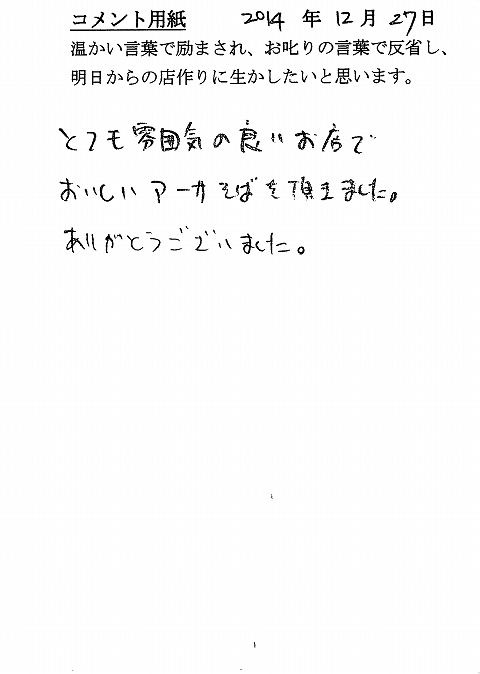 コメント用紙 2014 年 12月 27日
温かい言葉で励まされ、お叱りの言葉で反省し、
明日からの店作りに生かしたいと思います。
とても雰囲気の良いお店で
おいしいアーサそばを頂きました。
ありがとうございました。